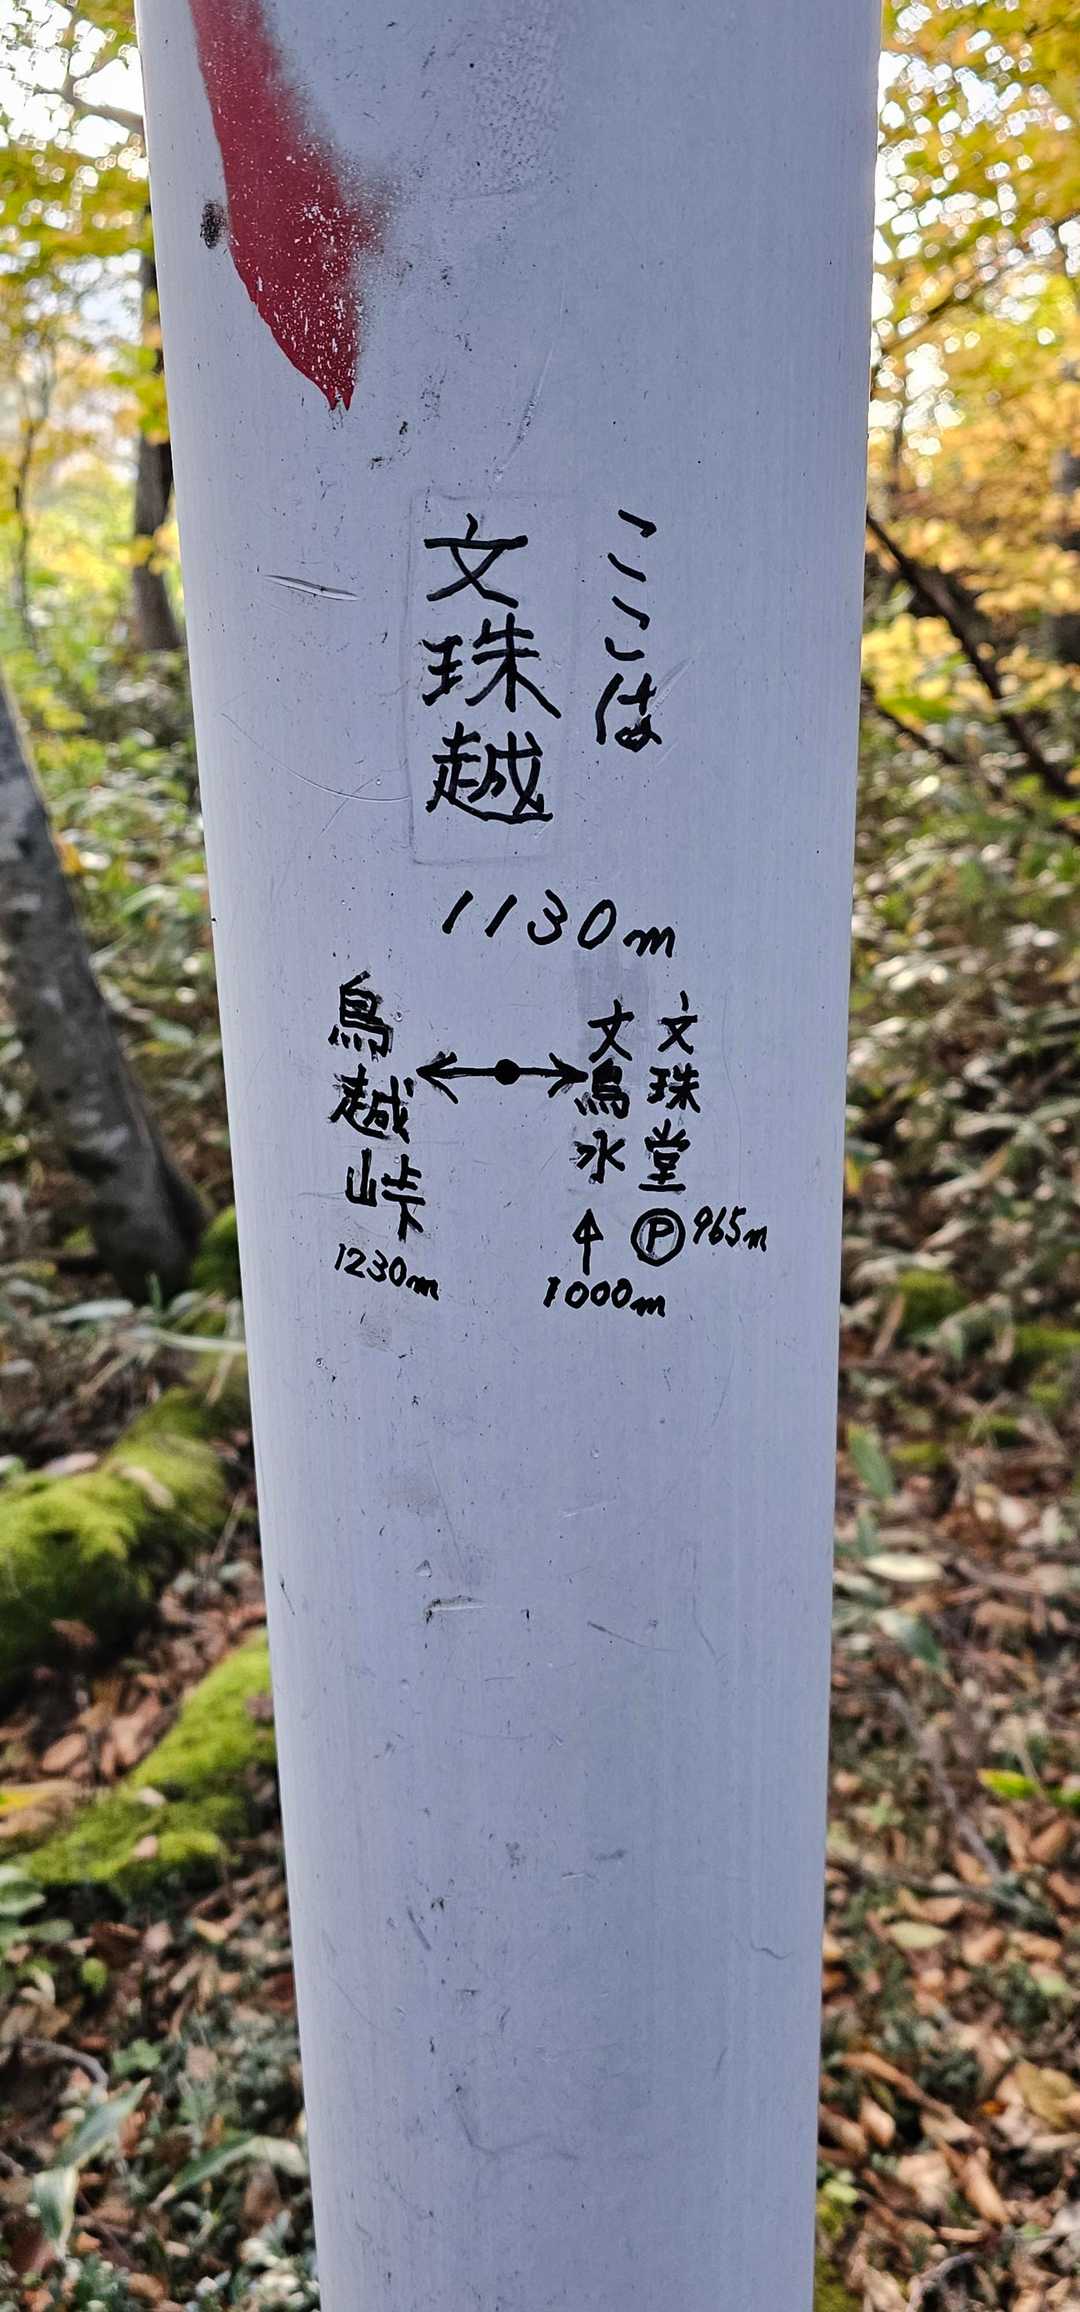 ここは
文珠越
1130m
鳥越峠
1230m
文珠堂
Ⓟ965m
丈鳥水
↑
1000m